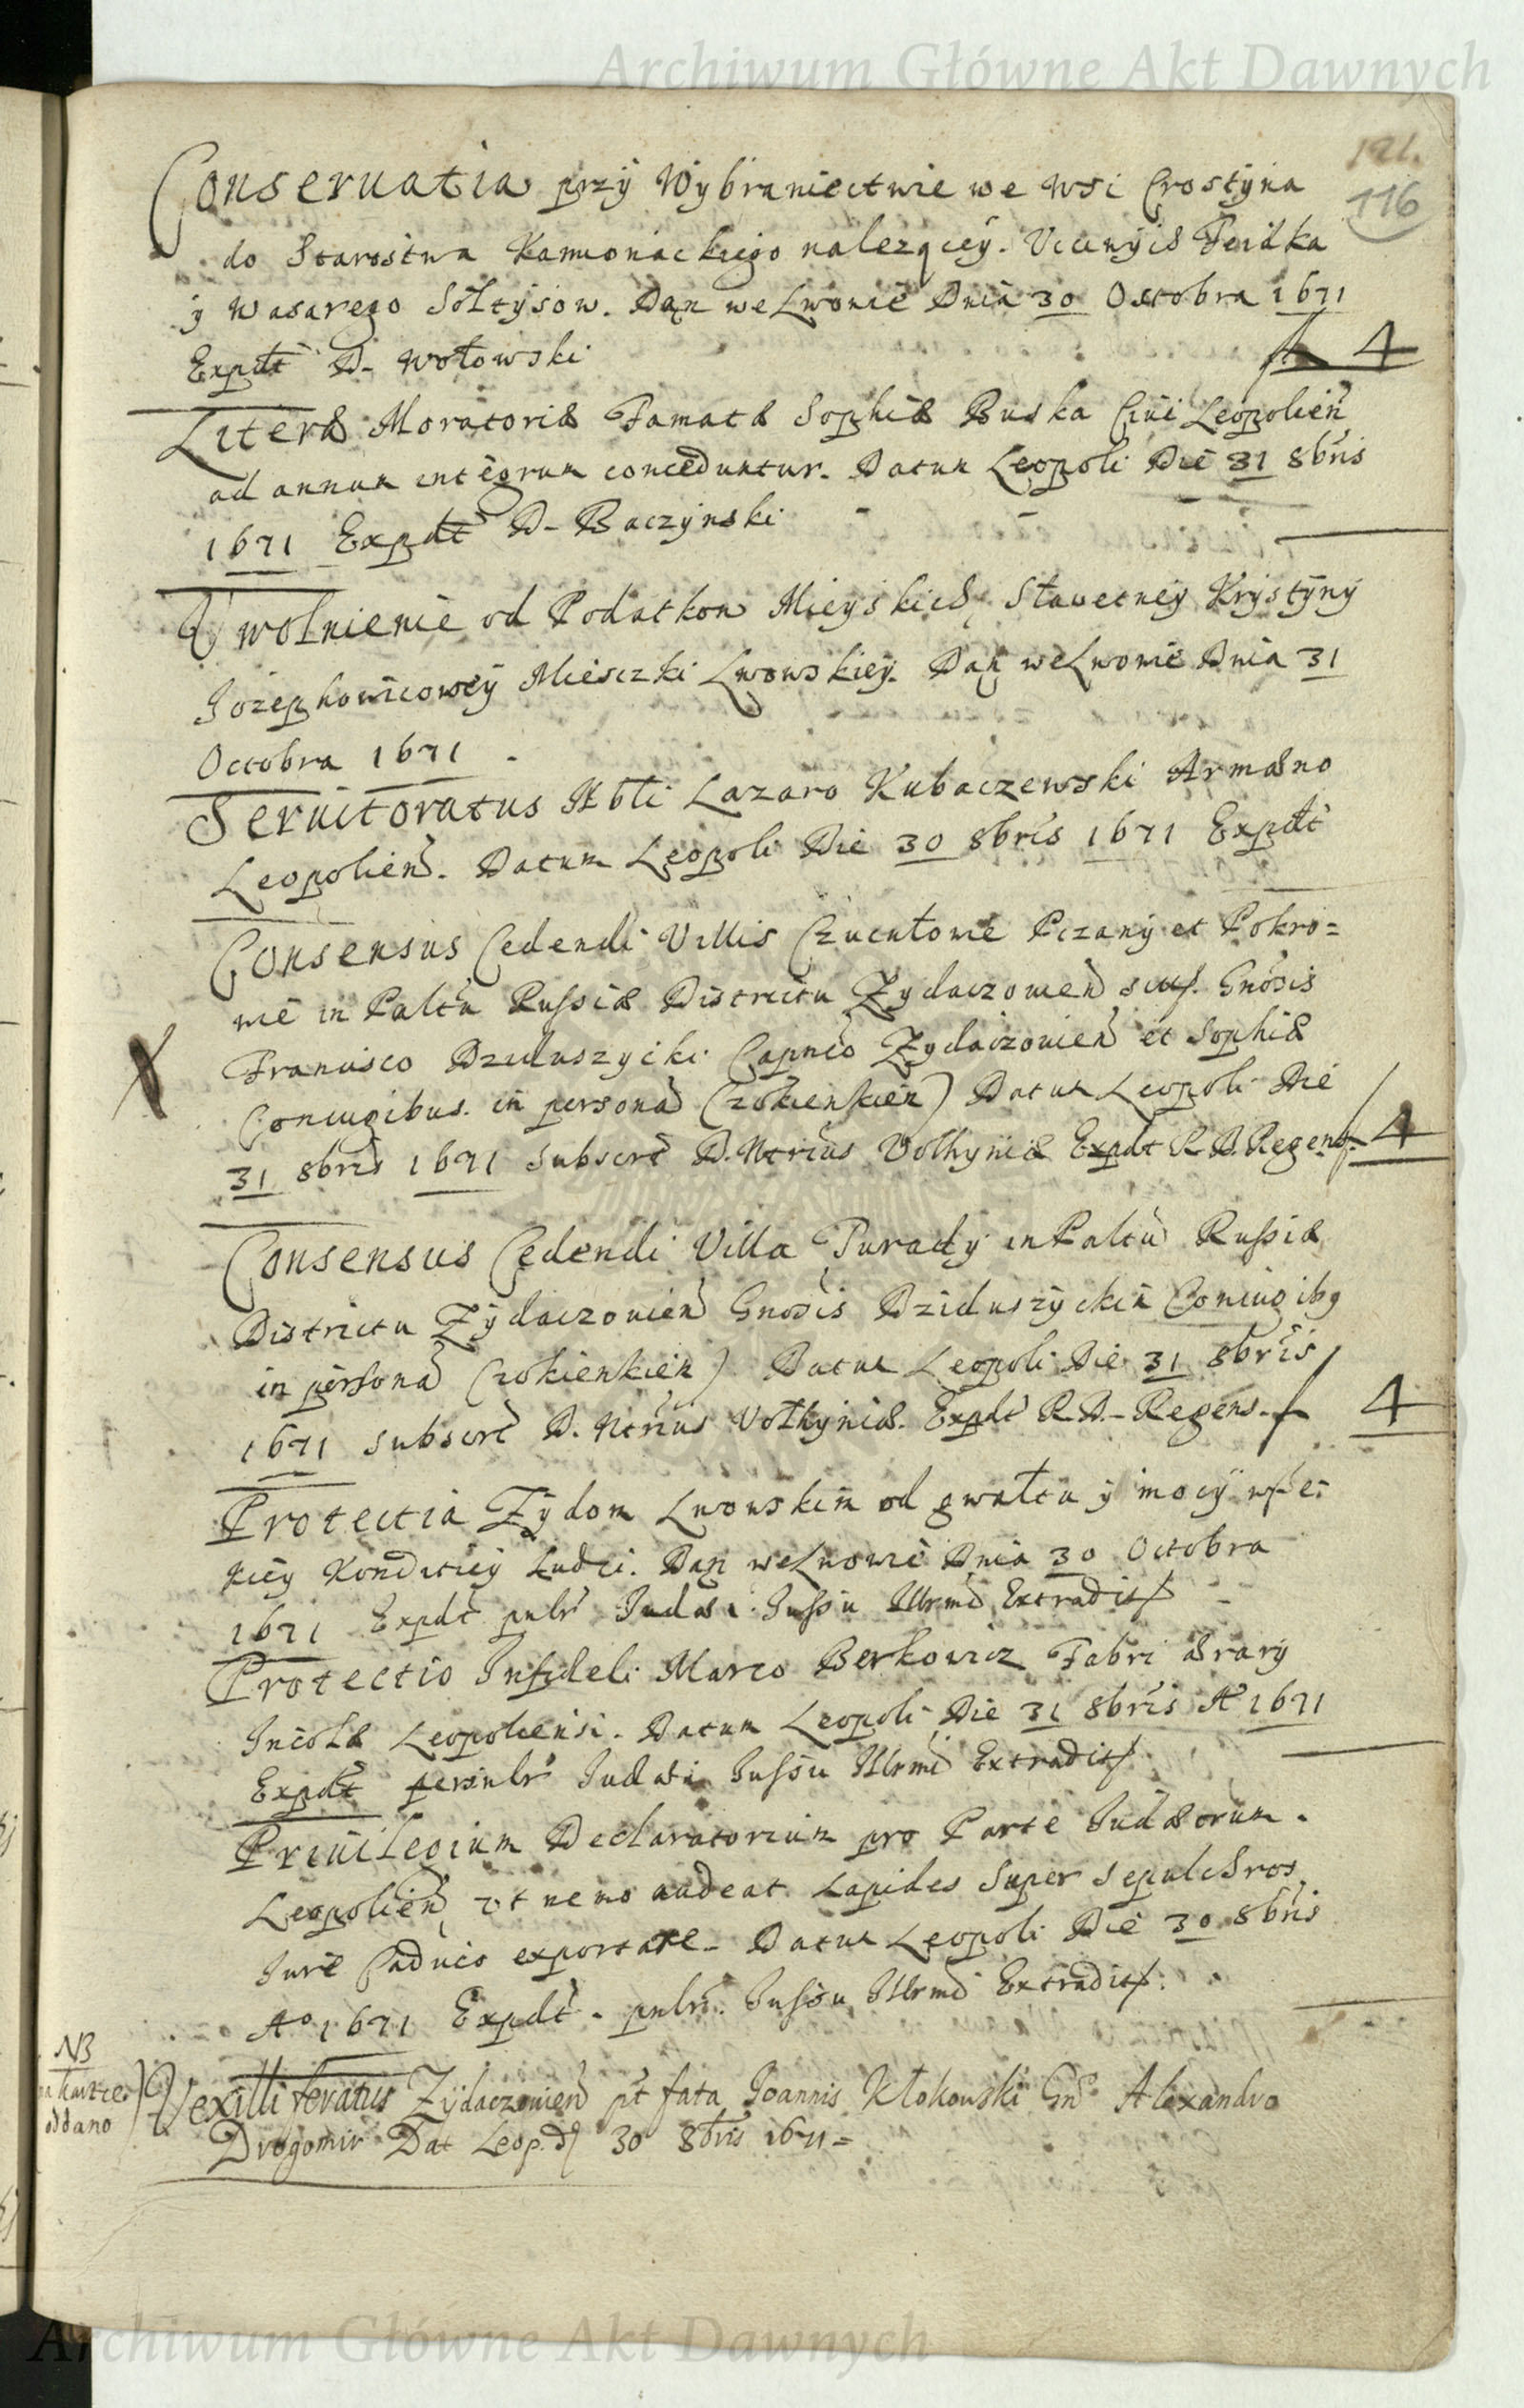 Archiwum Główne Akt Dawnych
121.
116
Conseruatia przÿ Wÿbraniectwie we wsi Crostÿna
do Starostwa Kamionackiego nalezącéÿ. Vccinÿch Fedka
ÿ Wasarego Sołtÿsow. Dan̄ we Lwowie Dnia 30 Octobra 1671
Expdt D- Wołowski f 4
Literæ Moratoriæ Famatæ Sophiæ Buska Ciui Leopolień
ad annum integrum conceduntur. Datum Leopoli Die 31 8bris
1671 Expdt D- Baczÿnski
Vwolnienie od Podatkow Mieÿskich Sławetneÿ Krÿstÿnÿ
Jozephowicoweÿ Miesczki Lwowskieÿ. Dan̄ we Lwowie Dnia 31
Octobra 1671
Seruitoratus Nbli Lazaro Kubaczewski Armæno
Leopolień. Datum Leopoli Die 30 8bris 1671 Expdt
Consensus Cedendi Villis Pczanÿ et Pokro=
wie in Paltu Russiæ Districtu Zÿdaczowień Gnosis
Francisco Dzieduszÿcki Capneo Zÿdaczouień et Sophiæ
Coniugibus. in personā (zołkienkień) Datum Leopoli Die
31 8bris 1671 Subscrt D. Ntrius Volhÿniæ Expdt R. D. Regens f 4
Consensus Cedendi Villa Turadÿ in Paltu Russiæ
Districtu Zÿdaczouień Gnosis Dzieduszÿckim Coniugibq
in personā (zołkienkień) Datum Leopoli Die 31 8bris
1671 Subscrt D. Ntrius Vołhÿniæ. Expdt R. D. – Regens. f 4
Protectia Zÿdom Lwowskim od gwałtu ÿ mocÿ wsze:
kieÿ Konditieÿ Ludzi. Dan̄ we Lwowie Dnia 30 Octobra
1671 Expdt pulr Judæi Jussu Illrmi Extradit
Protectio Infideli Marco Berkowicz Fabri ærarÿ
Incolæ Leopoliensi. Datum Leopoli Die 31 8bris A° 1671
Expdt Judæi Jussu Illrmi Extradit
Priuilegium Declaratorium pro Parte Judæorum.
Leopolień vt nemo audeat Lapides super sepulchros
Jure Caduco exportare – Datum Leopoli Die 30 8bris
A° 1671 Expdt – pulr. Jussu Illrmi Extradit
NB
na kartce
oddano
Vexilliferatus Zÿdaczowień pt fata Joannis Kłokowski Gn° Alexandro
Drogomir Dat Leop. d 30 8bris 1671=
Archiwum Główne Akt Dawnych